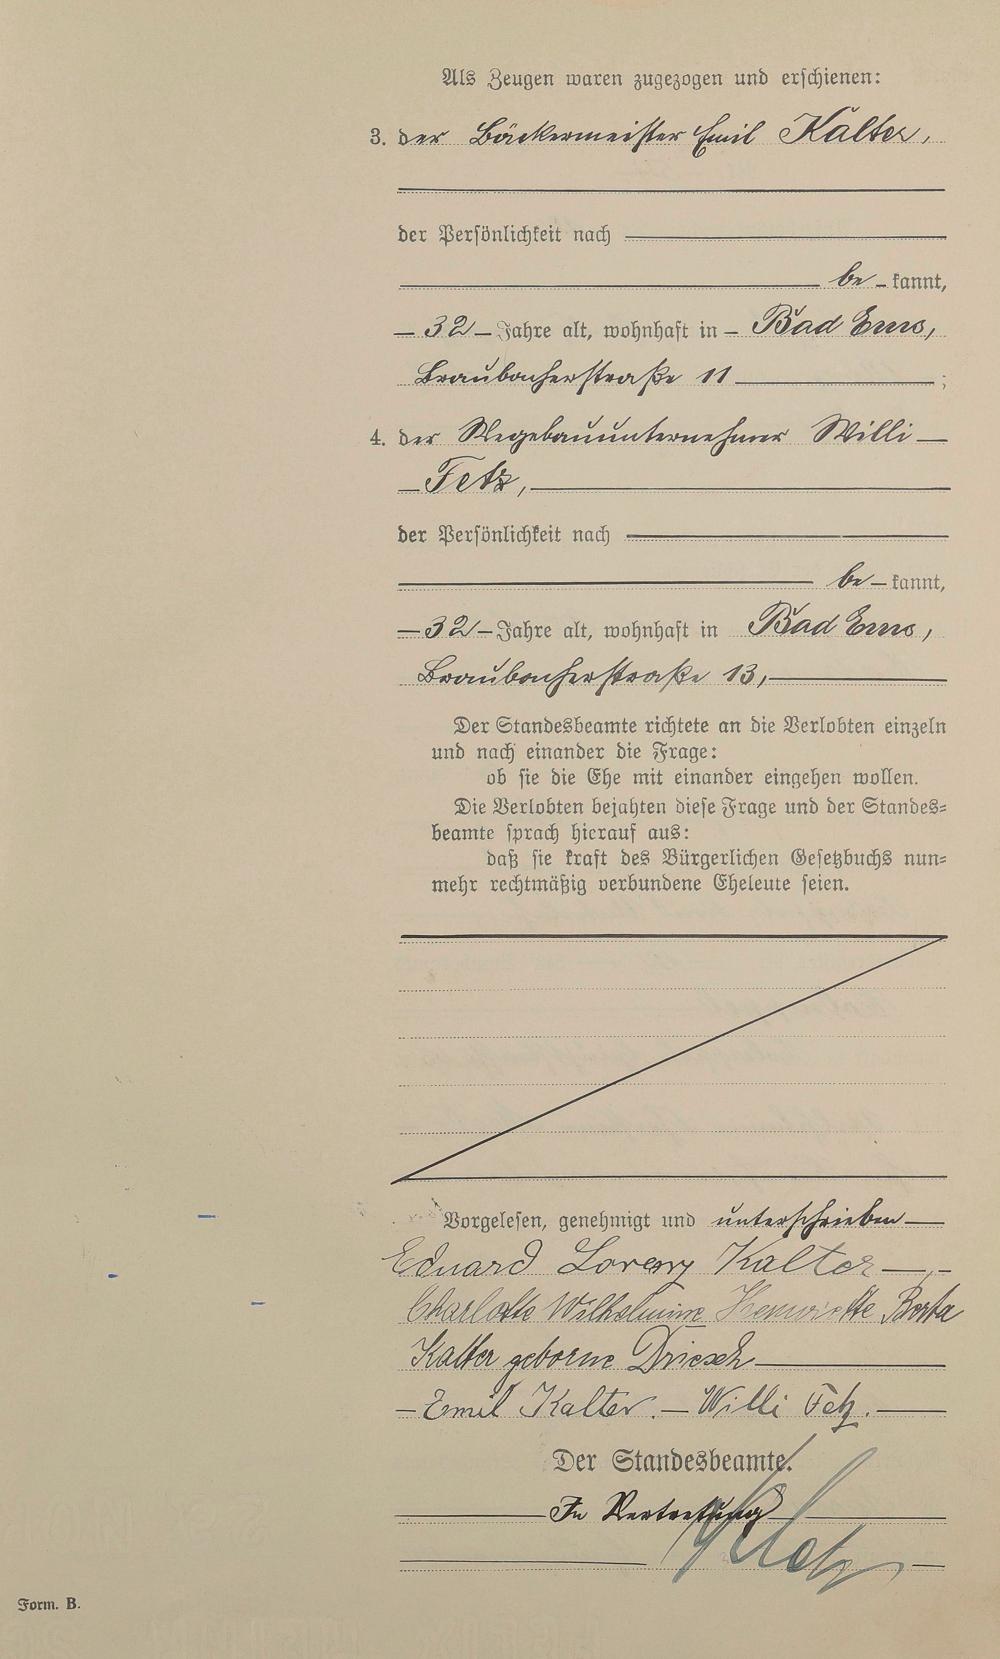 Als Zeugen waren zugezogen und erschienen:
3. der Bäckermeister Emil Kalter,
der Persönlichkeit nach
be - kannt,
- 32 - Jahre alt, wohnhaft in - Bad Ems,
Braubacherstraße 11 ;
4. der Wegebauunternehmer Willi -
- Fetz, -
der Persönlichkeit nach
be - kannt,
- 32 - Jahre alt, wohnhaft in Bad Ems,
Braubacherstraße 13, -
Der Standesbeamte richtete an die Verlobten einzeln
und nach einander die Frage:
ob sie die Ehe mit einander eingehen wollen.
Die Verlobten bejahten diese Frage und der Standes-
beamte sprach hierauf aus:
daß sie kraft des Bürgerlichen Gesetzbuchs nun-
mehr rechtmäßig verbundene Eheleute seien.
Vorgelesen, genehmigt und unterschrieben -
Eduard Lorenz Kalter -
Charlotte Wilhelmine Henriette Berta
Kalter geborne Driesch -
- Emil Kalter. - Willi Fetz. -
Der Standesbeamte.
In Vertretung
Form. B.